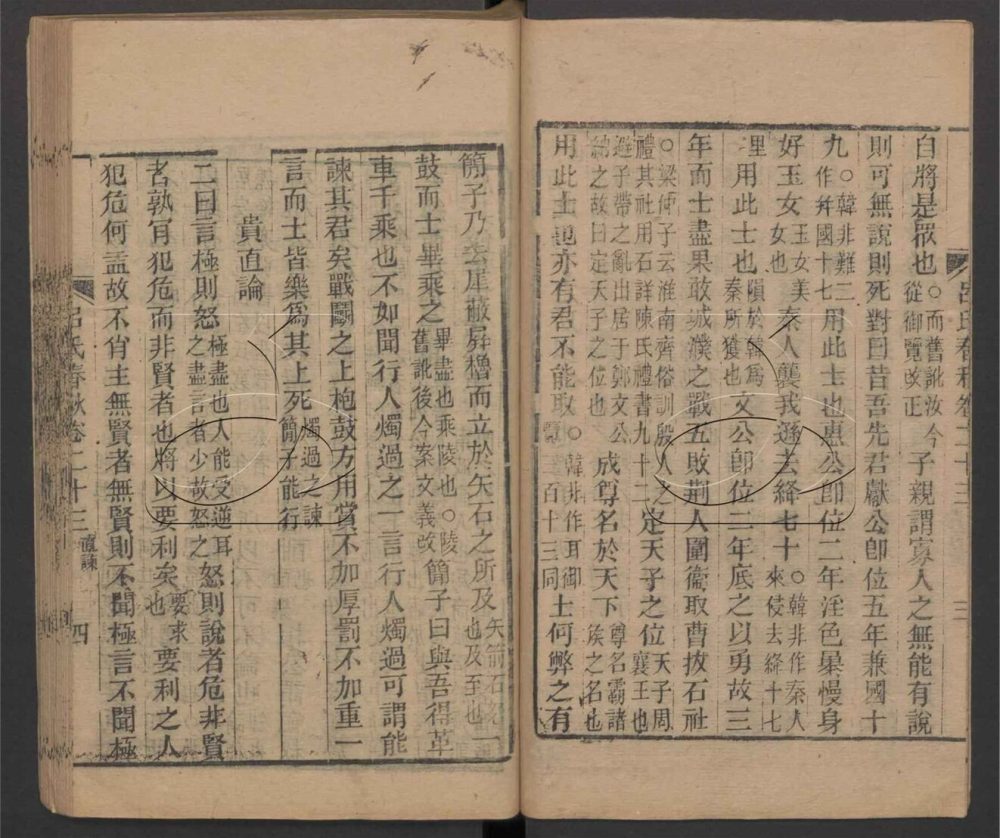 自將是衆也○而舊訛汝今從御覽改正子親謂寡人之無能有說
則可無說則死對曰昔吾先君獻公卽位五年兼國十
九○韓非難二作幷國十七用此士也惠公卽位二年淫色暴慢身
好玉女玉女美女也秦人襲我遜去絳七十○韓非作秦人來侵去絳十七
里用此士也隕於韓爲秦所獲也文公卽位二年底之以勇故三
年而士盡果敢城濮之戰五敗荆人圍衞取曹拔石社
○梁仲子云淮南齊俗訓殷人之禮其社用石詳陳氏禮書九十二定天子之位天子周襄王也
避子帶之亂出居于鄭文公納之故曰定天子之位也成尊名於天下尊名霸諸侯之名也
用此士也亦有君不能取○韓非作耳御覽三百十三同士何弊之有
呂氏春秋卷二十三
三
簡子乃去犀蔽屏櫓而立於矢石之所及矢箭石也及至也一
鼓而士畢乘之畢盡也乘陵也○陵舊訛後今案文義改簡子曰與吾得革
車千乘也不如聞行人燭過之一言行人燭過可謂能
諫其君矣戰鬭之上枹鼓方用賞不加厚罰不加重一
言而士皆樂爲其上死燭過之諫簡子能行
貴直論
二曰言極則怒極盡也人能受逆耳之盡言者少故怒之怒則說者危非賢
者孰肯犯危而非賢者也將以要利矣要求也要利之人
犯危何益故不肖主無賢者無賢則不聞極言不聞極
呂氏春秋卷二十三
直諫
四